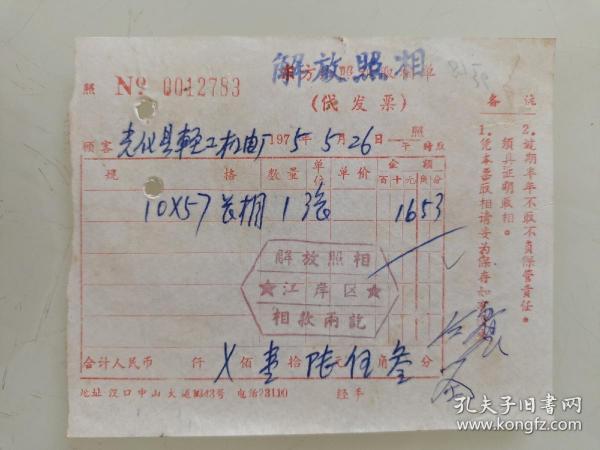 解放照相
照 No 0012783
(代发票)
顾客 光化县轻工机电厂 1975年5月26日 照
午 时取
规格 数量 单位 单价 金额
百十元角分
10X57 长棚 1 张 1653
解放照相
★江岸区★
相款两讫
合计人民币 仟 X 佰 壹 拾 陆 元 伍 角 叁 分
地址 汉口中山大道 电话23110 经手
备注
1. 凭本票取相请妥为保存如
须具证明取相。
2. 逾期半年不取不负保管责任。
孔夫子旧书网
www.kongfz.com